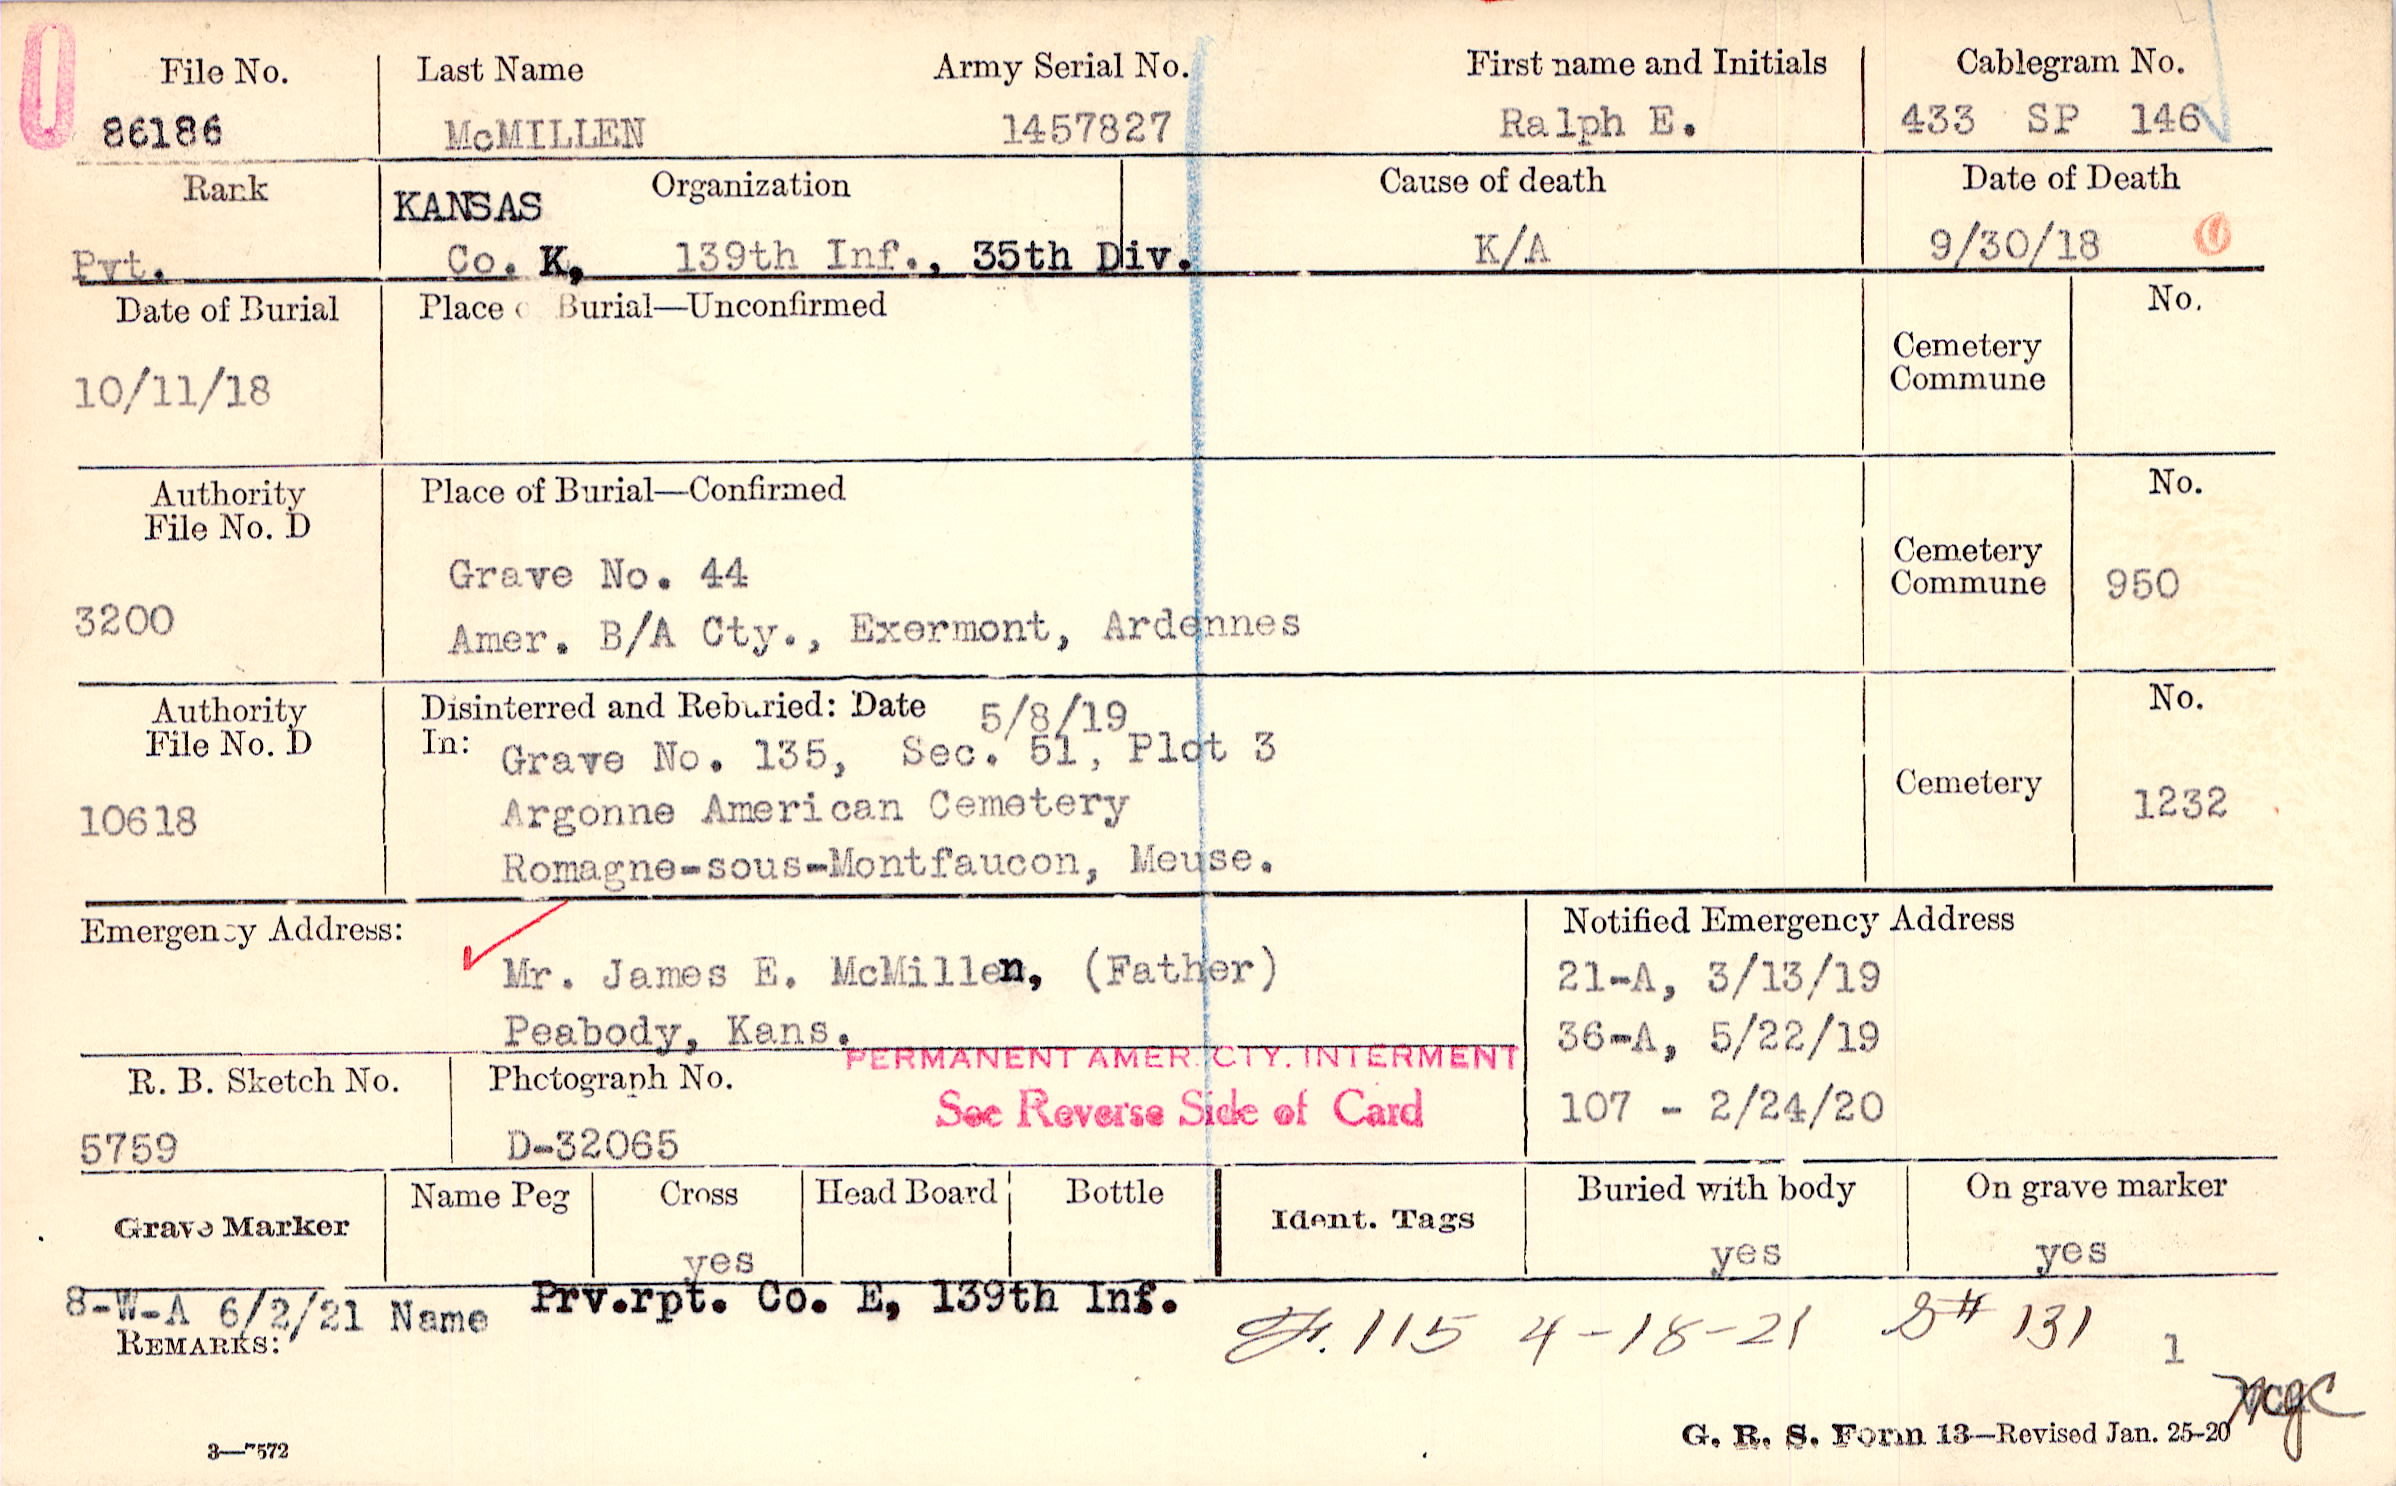 File No. Last Name Army Serial No. First name and Initials Cablegram No.
86186 McMILLEN 1457827 Ralph E. 433 SP 146
Rank Organization Cause of death Date of Death
KANSAS
Pvt. Co. K, 139th Inf., 35th Div. K/A 9/30/18
Date of Burial Place o Burial—Unconfirmed No.
Cemetery
Commune
10/11/18
Authority Place of Burial—Confirmed No.
File No. D
Grave No. 44 Cemetery
Commune 950
3200 Amer. B/A Cty., Exermont, Ardennes
Authority Disinterred and Reburied: Date 5/8/19 No.
File No. D In: Grave No. 135, Sec. 51, Plot 3
Cemetery
10618 Argonne American Cemetery 1232
Romagne-sous-Montfaucon, Meuse.
Emergency Address: Notified Emergency Address
Mr. James E. McMillen, (Father) 21-A, 3/13/19
Peabody, Kans. 36-A, 5/22/19
PERMANENT AMER. CTY. INTERMENT
R. B. Sketch No. Photograph No. See Reverse Side of Card 107 - 2/24/20
5759 D-32065
Grave Marker Name Peg Cross Head Board Bottle Ident. Tags Buried with body On grave marker
yes yes yes
8-W-A 6/2/21 Name Prv.rpt. Co. E, 139th Inf.
REMARKS: 115 4-18-21 S# 131 1
G. R. S. Form 13—Revised Jan. 25-20
3—7572